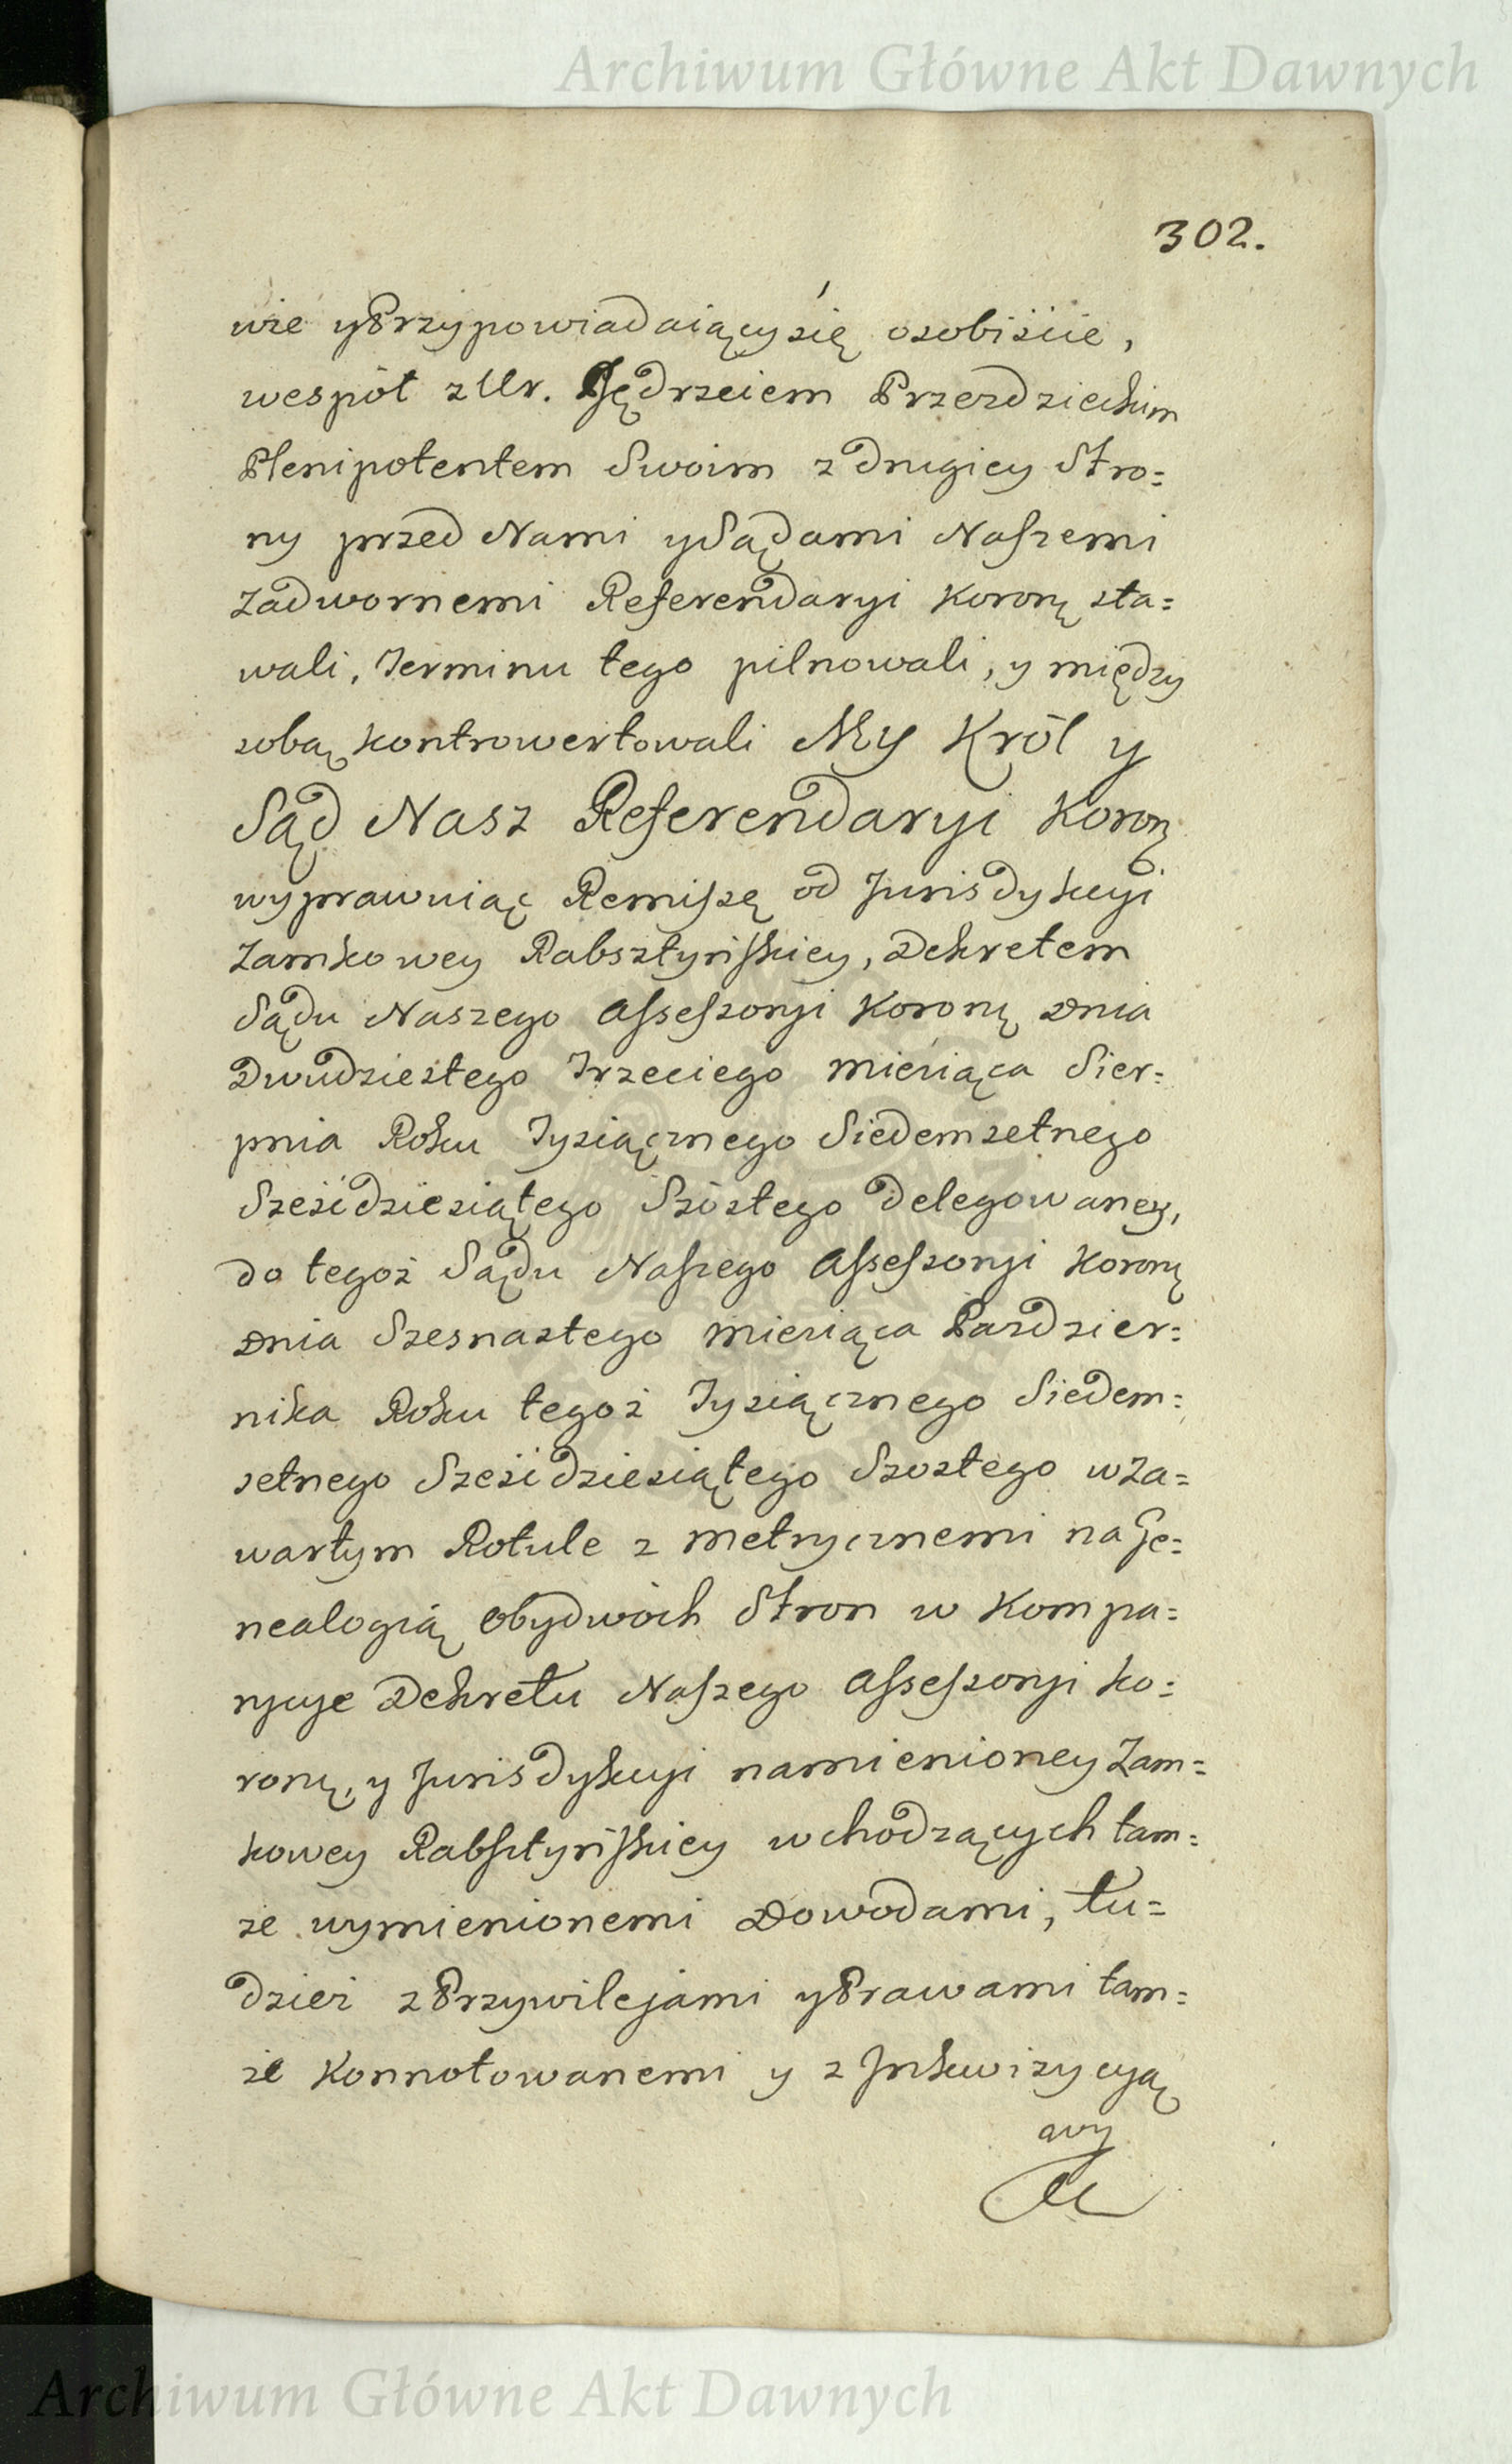 Archiwum Główne Akt Dawnych
302.
wie y Przypowiadaiący się osobiście,
wespół z Ur. Jędrzeiem Przezdzieckim
Plenipotentem Swoim z drugiey Stro=
ny przed Nami y Sądami Naszemi
Zadwornemi Referendaryi Koronę sta=
wali, Terminu tego pilnowali, y między
sobą kontrowertowali My Król y
Sąd Nasz Referendaryi Koronę
wyprawuiąc Remissę od Jurisdykcyi
Zamkowey Rabsztyńskiey, Dekretem
Sądu Naszego Assessoryi Koronę Dnia
Dwudziestego Trzeciego Miesiąca Sier=
pnia Roku Tysiącznego Siedemsetnego
Sześidziesiątego Szóstego delegowaney,
do tegoż Sądu Naszego Assessoryi Koronę
Dnia Szesnastego Miesiąca Pazdzier=
nika Roku tegoż Tysiącznego Siedem=
setnego Sześidziesiątego Szostego w Za=
wartym Rotule z Metrycznemi na Ge=
nealogią Obydwóch Stron w Kompa=
rycyę Dekretu Naszego Assessoryi Ko=
ronę, y Jurisdykcyi namienioney Zam=
kowey Rabsztyńskiey wchodzących tam=
że wymienionemi Dowodami, tu=
dzież z Przywilejami y Prawami tam=
że Konnotowanemi y z Inkwizycyą
wy
Archiwum Główne Akt Dawnych